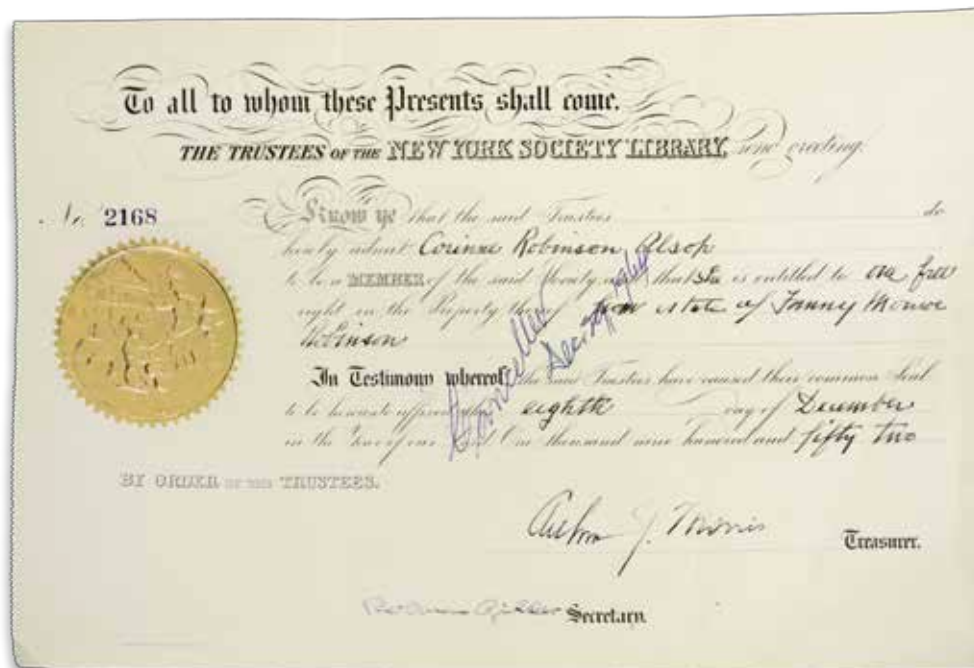 To all to whom these Presents shall come.
THE TRUSTEES OF THE NEW YORK SOCIETY LIBRARY, send greeting.
No. 2168
Know ye that the said Trustees do
hereby admit Corinne Robinson Alsop
to be a MEMBER of the said Society and that she is entitled to one free
right in the Property thereof from estate of Fanny Monroe
Robinson
Cancelled
Dec.
In Testimony whereof, the said Trustees have caused their common Seal
to be hereunto affixed the eighth day of December
in the Year of our Lord One thousand nine hundred and fifty two
BY ORDER OF THE TRUSTEES.
J. Morris
Treasurer.
Secretary.